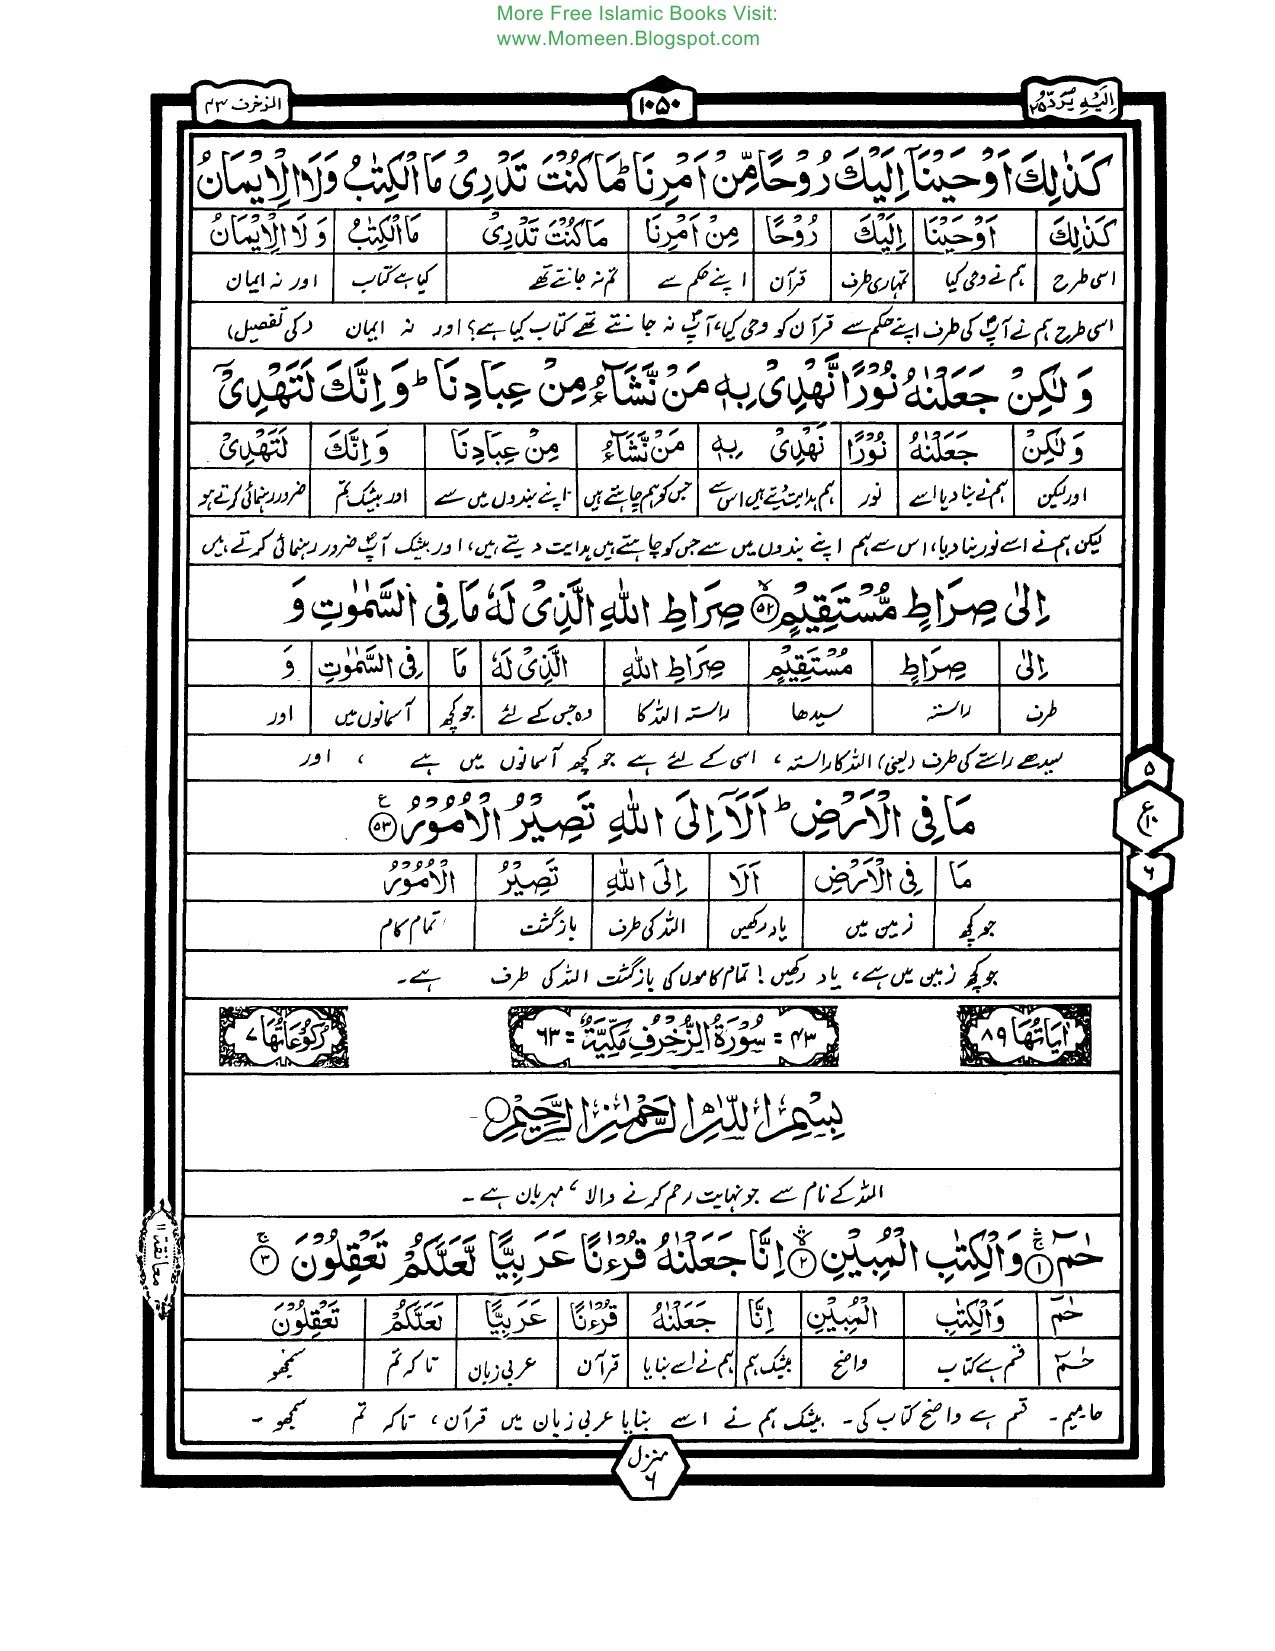 More Free Islamic Books Visit:
www.Momeen.Blogspot.com
اِلَیۡهِ یُرَدُّ ۲۵ ۱۰۵۰ الزخرف ۴۳
كَذٰلِكَ اَوْحَيْنَاۤ اِلَيْكَ رُوْحًا مِّنْ اَمْرِنَا ؕ مَا كُنْتَ تَدْرِىْ مَا الْكِتٰبُ وَلَا الْاِيْمَانُ
كَذٰلِكَ اَوْحَيْنَا اِلَيْكَ رُوْحًا مِنْ اَمْرِنَا مَا كُنْتَ تَدْرِىْ مَا الْكِتٰبُ وَلَا الْاِيْمَانُ
اسی طرح ہم نے وحی کیا تمہاری طرف قرآن اپنے حکم سے تم نہ جانتے تھے کیا ہے کتاب اور نہ ایمان
اسی طرح ہم نے آپؐ کی طرف اپنے حکم سے قرآن کو وحی کیا، آپؐ نہ جانتے تھے کتاب کیا ہے؟ اور نہ ایمان (کی تفصیل)
وَلٰكِنْ جَعَلْنٰهُ نُوْرًا نَّهْدِىْ بِهٖ مَنْ نَّشَآءُ مِنْ عِبَادِنَا ؕ وَاِنَّكَ لَتَهْدِىْۤ
وَلٰكِنْ جَعَلْنٰهُ نُوْرًا نَهْدِىْ بِهٖ مَنْ نَّشَآءُ مِنْ عِبَادِنَا وَاِنَّكَ لَتَهْدِىْ
اور لیکن ہم نے بنا دیا اسے نور ہم ہدایت دیتے ہیں اس سے جس کو ہم چاہتے ہیں اپنے بندوں میں سے اور بیشک تم ضرور رہنمائی کرتے ہو
لیکن ہم نے اسے نور بنا دیا، اس سے ہم اپنے بندوں میں سے جس کو چاہتے ہیں ہدایت دیتے ہیں، اور بیشک آپؐ ضرور رہنمائی کرتے ہیں
اِلٰى صِرَاطٍ مُّسْتَقِيْمٍ ۙ۵۲ صِرَاطِ اللّٰهِ الَّذِىْ لَهٗ مَا فِى السَّمٰوٰتِ وَ
اِلٰى صِرَاطٍ مُسْتَقِيْمٍ صِرَاطِ اللّٰهِ الَّذِىْ لَهٗ مَا فِى السَّمٰوٰتِ وَ
طرف راستہ سیدھا راستہ اللہ کا وہ جس کے لئے جو کچھ آسمانوں میں اور
سیدھے راستے کی طرف (یعنی) اللہ کا راستہ، اسی کے لئے ہے جو کچھ آسمانوں میں ہے ، اور
۵
مَا فِى الْاَرْضِ ؕ اَلَاۤ اِلَى اللّٰهِ تَصِيْرُ الْاُمُوْرُ ۵۳ ع
ع ۱۰
مَا فِى الْاَرْضِ اَلَا اِلَى اللّٰهِ تَصِيْرُ الْاُمُوْرُ
۶
جو کچھ زمین میں یاد رکھیں اللہ کی طرف بازگشت تمام کام
جو کچھ زمین میں ہے، یاد رکھیں! تمام کاموں کی بازگشت اللہ کی طرف ہے۔
اٰیَاتُهَا ۸۹ ۴۳ = سُوْرَةُ الزُّخْرُفِ مَكِّيَّةٌ = ۶۳ رُكُوْعَاتُهَا ۷
بِسْمِ اللّٰهِ الرَّحْمٰنِ الرَّحِيْمِ
اللہ کے نام سے جو نہایت رحم کرنے والا، مہربان ہے۔
حٰمٓ ۚ۱ وَالْكِتٰبِ الْمُبِيْنِ ۲ اِنَّا جَعَلْنٰهُ قُرْءٰنًا عَرَبِيًّا لَّعَلَّكُمْ تَعْقِلُوْنَ ۚ۳
معانقة ۱۱
حٰمٓ وَالْكِتٰبِ الْمُبِيْنِ اِنَّا جَعَلْنٰهُ قُرْءٰنًا عَرَبِيًّا لَعَلَّكُمْ تَعْقِلُوْنَ
حٰمٓ قسم ہے کتاب واضح بیشک ہم ہم نے اسے بنایا قرآن عربی زبان تاکہ تم سمجھو
حا میم۔ قسم ہے واضح کتاب کی۔ بیشک ہم نے اسے بنایا عربی زبان میں قرآن، تاکہ تم سمجھو ۔
منزل ۶